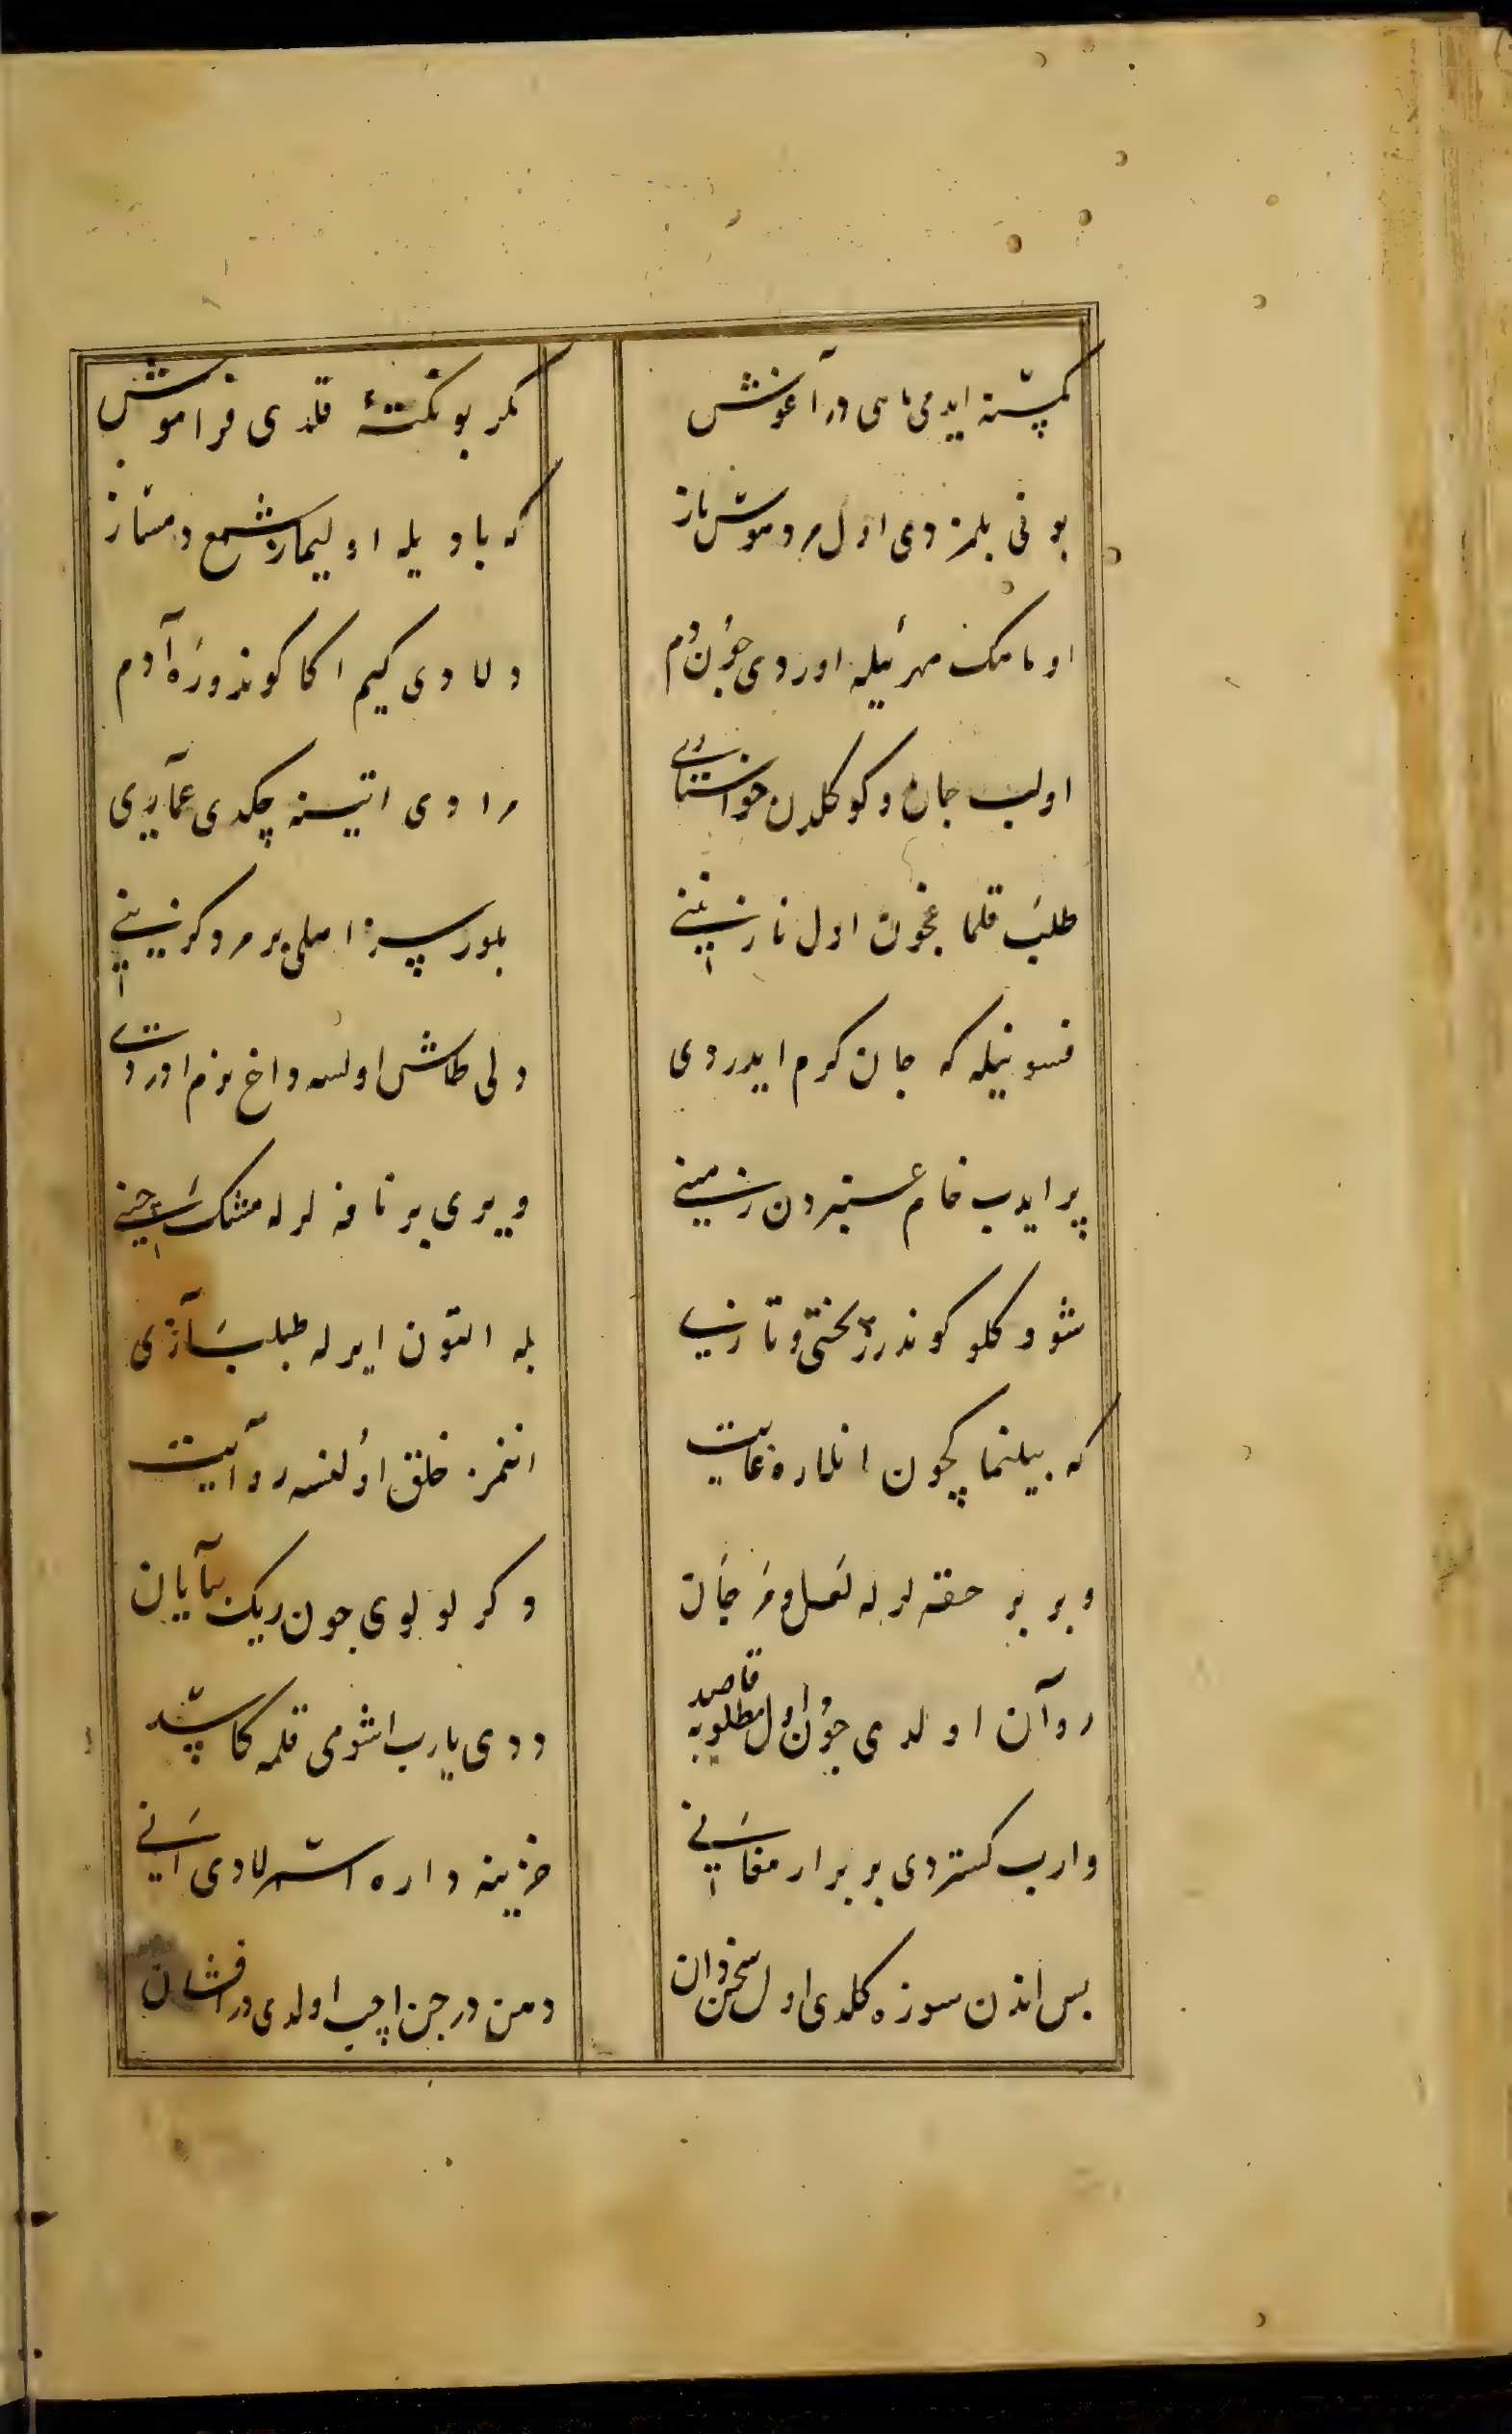 کمسنه ایدمی ماهی در آغوش
مکر بو نکته قلدی فراموش
بونی بلمزدی اول مرد هوس باز
که بادیله اولیمازه شمع دمساز
اومامک مهرئیله اوردی چون دم
دلادی کیم اکا کوندوره آدم
اولب جان و کوکلدن خواستاری
مرادی اتیسنه چکدی عماری
طلب قلماغچون اول نازنینی
بلورسز اصلی بر مرد کزینی
فسونیله که جان کرم ایدردی
دلی طاش اولسه داخ نرم اوردی
پر ایدب خام عنبردن زمینی
ویردی بر نافه لرله مشک چینی
شو دکلو کوندرر بختی و تازی
بله التون ایرله طبلبازی
که بیلنماکچون انلاره غایت
انغمز خلق اولنسه روایت
ویر بر حقه لرله لعل و مرجان
دکر لولوی چون ریک بیابان
روان اولدی چون اول مطلوبه قاصد
ددی یارب اشومی قلمه کاسد
وارب کستردی بر بر ارمغانی
خزینه داره اسمرلادی انی
بس اندن سوزه کلدی اول سخن دان
دهن درجن اچب اولدی در افشان